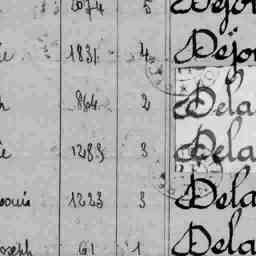 2074 5 Dejo
1831 4 Dejo
864 2 Dela
1289 3 Dela
1223 3 Dela
oseph 61 1 Dela